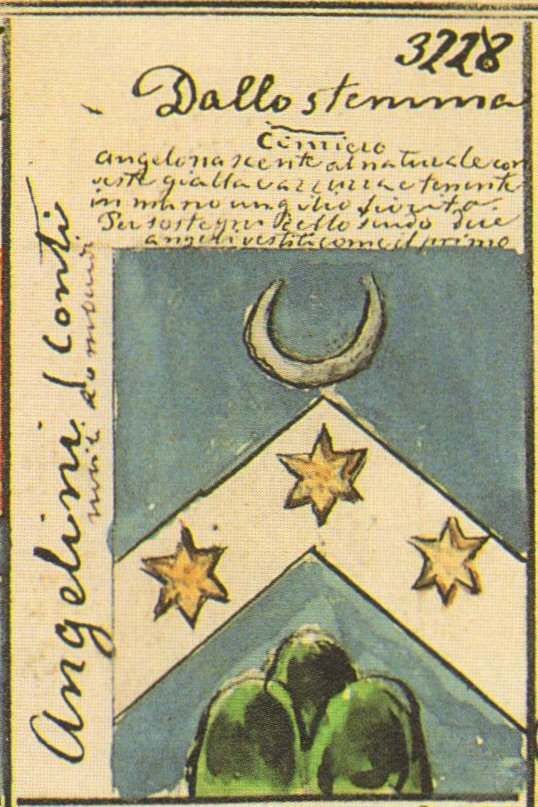 3228
Dallo stemma
Cimiero
angelo nascente al naturale con
veste gialla e azzurra e tenente
in mano un giglio fiorito.
Per sostegni dello scudo due
angeli vestiti come il primo
Angelini, conti